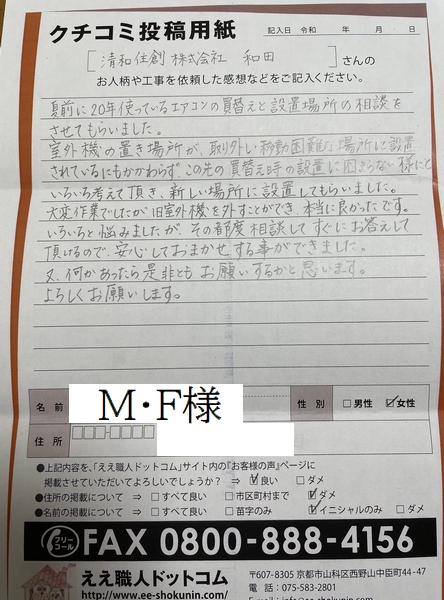 クチコミ投稿用紙
記入日 令和 年 月 日
[ 清和住創 株式会社 和田 ] さんの
お人柄や工事を依頼した感想などをご記入ください。
夏前に20年使っているエアコンの買替えと設置場所の相談を
させてもらいました。
室外機の置き場所が、取り外し移動困難な場所に設置
されているにもかかわらず、この先の買替え時の設置に困らない様にと
いろいろ考えて頂き、新しい場所に設置してもらいました。
大変作業でしたが旧室外機を外すことができ、本当に良かったです。
いろいろと悩みましたが、その都度相談してすぐにお答えして
頂けるので、安心しておまかせする事ができました。
又、何かあったら是非ともお願いするかと思います。
よろしくお願いします。
名前 M・F様 性別 □男性 ☑女性
住所
●上記内容を、「ええ職人ドットコム」サイト内の『お客様の声』ページに
掲載させていただいてよろしいでしょうか? ⇒ ☑良い □ダメ
●住所の掲載について ⇒ □すべて良い □市区町村まで ☑ダメ
●名前の掲載について ⇒ □すべて良い □苗字のみ ☑イニシャルのみ □ダメ
フリーコール FAX 0800-888-4156
ええ職人ドットコム
http://www.ee-shokunin.com/
〒607-8305 京都市山科区西野山中臣町44-47
電話:075-583-2801